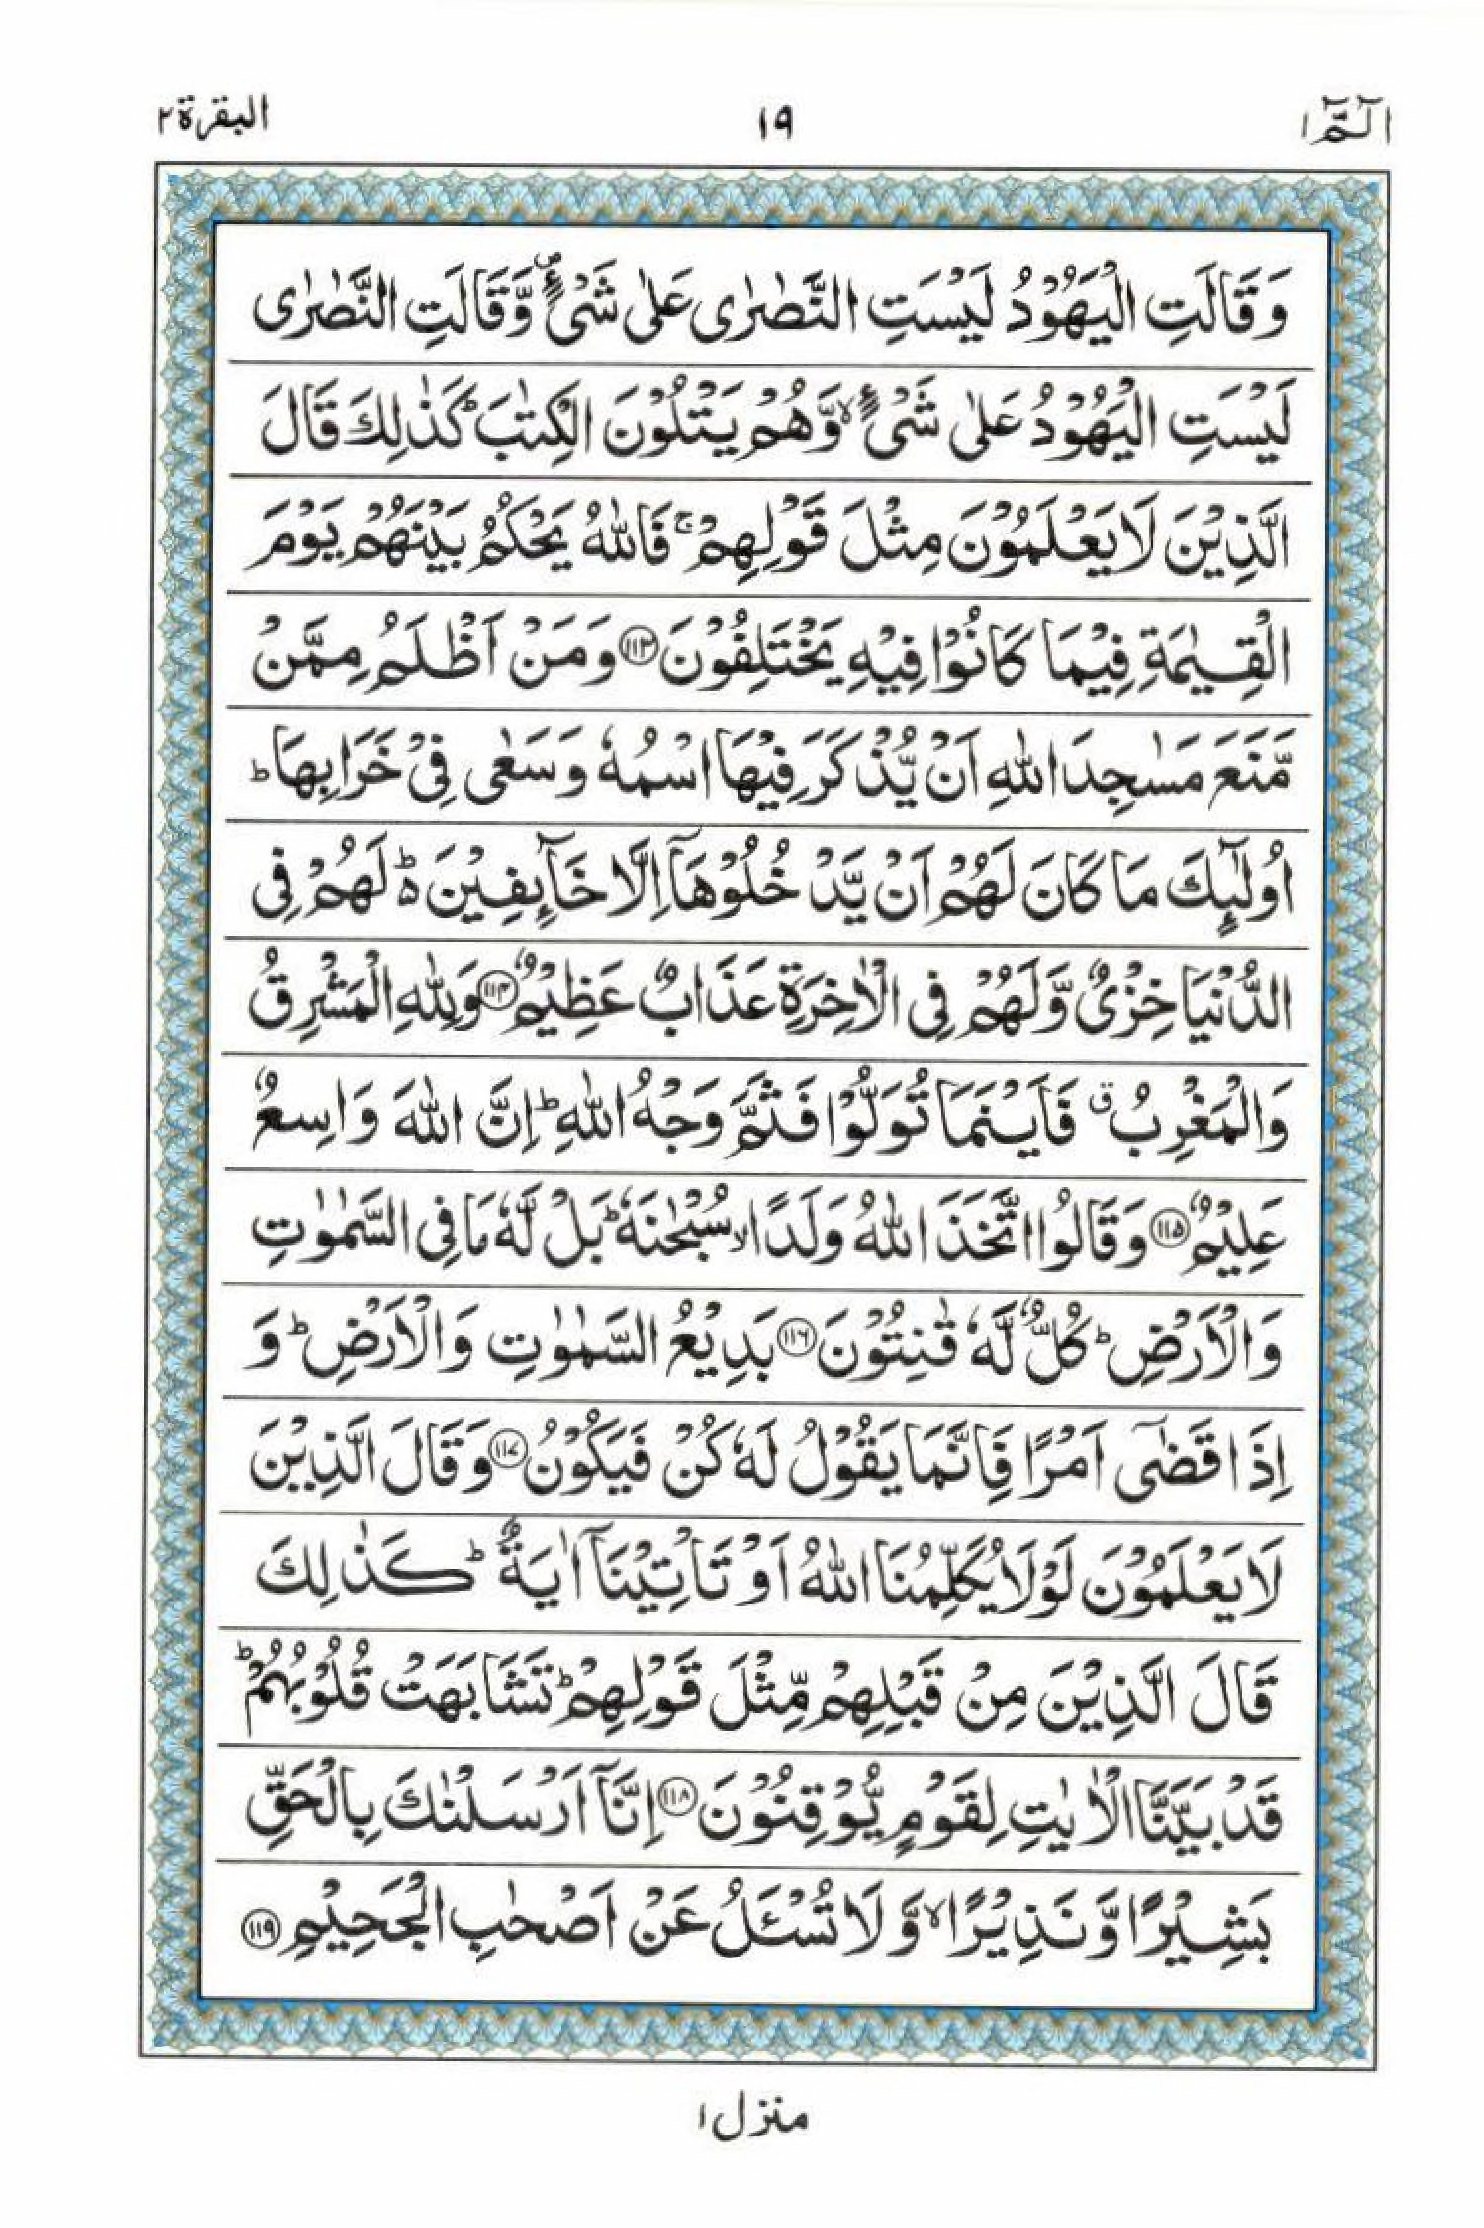 الٓمّٓ ١
١٩
البقرة ٢
وَقَالَتِ الْيَهُوْدُ لَيْسَتِ النَّصٰرٰى عَلٰى شَيْءٍ ۪ وَّقَالَتِ النَّصٰرٰى
لَيْسَتِ الْيَهُوْدُ عَلٰى شَيْءٍ ۙ وَّهُمْ يَتْلُوْنَ الْكِتٰبَ ؕ كَذٰلِكَ قَالَ
الَّذِيْنَ لَا يَعْلَمُوْنَ مِثْلَ قَوْلِهِمْ ۚ فَاللّٰهُ يَحْكُمُ بَيْنَهُمْ يَوْمَ
الْقِيٰمَةِ فِيْمَا كَانُوْا فِيْهِ يَخْتَلِفُوْنَ ﴿۱۱۳﴾ وَمَنْ اَظْلَمُ مِمَّنْ
مَّنَعَ مَسٰجِدَ اللّٰهِ اَنْ يُّذْكَرَ فِيْهَا اسْمُهٗ وَسَعٰى فِيْ خَرَابِهَا ؕ
اُولٰٓئِكَ مَا كَانَ لَهُمْ اَنْ يَّدْخُلُوْهَآ اِلَّا خَآئِفِيْنَ ۬ؕ لَهُمْ فِي
الدُّنْيَا خِزْيٌ وَّلَهُمْ فِي الْاٰخِرَةِ عَذَابٌ عَظِيْمٌ ﴿۱۱۴﴾ وَلِلّٰهِ الْمَشْرِقُ
وَالْمَغْرِبُ ق فَاَيْنَمَا تُوَلُّوْا فَثَمَّ وَجْهُ اللّٰهِ ؕ اِنَّ اللّٰهَ وَاسِعٌ
عَلِيْمٌ ﴿۱۱۵﴾ وَقَالُوا اتَّخَذَ اللّٰهُ وَلَدًا ۙ سُبْحٰنَهٗ ؕ بَلْ لَّهٗ مَا فِي السَّمٰوٰتِ
وَالْاَرْضِ ؕ كُلٌّ لَّهٗ قٰنِتُوْنَ ﴿۱۱۶﴾ بَدِيْعُ السَّمٰوٰتِ وَالْاَرْضِ ؕ وَ
اِذَا قَضٰٓى اَمْرًا فَاِنَّمَا يَقُوْلُ لَهٗ كُنْ فَيَكُوْنُ ﴿۱۱۷﴾ وَقَالَ الَّذِيْنَ
لَا يَعْلَمُوْنَ لَوْلَا يُكَلِّمُنَا اللّٰهُ اَوْ تَاْتِيْنَآ اٰيَةٌ ؕ كَذٰلِكَ
قَالَ الَّذِيْنَ مِنْ قَبْلِهِمْ مِّثْلَ قَوْلِهِمْ ؕ تَشَابَهَتْ قُلُوْبُهُمْ ؕ
قَدْ بَيَّنَّا الْاٰيٰتِ لِقَوْمٍ يُّوْقِنُوْنَ ﴿۱۱۸﴾ اِنَّآ اَرْسَلْنٰكَ بِالْحَقِّ
بَشِيْرًا وَّنَذِيْرًا ۙ وَّلَا تُسْـَٔلُ عَنْ اَصْحٰبِ الْجَحِيْمِ ﴿۱۱۹﴾
منزل ١